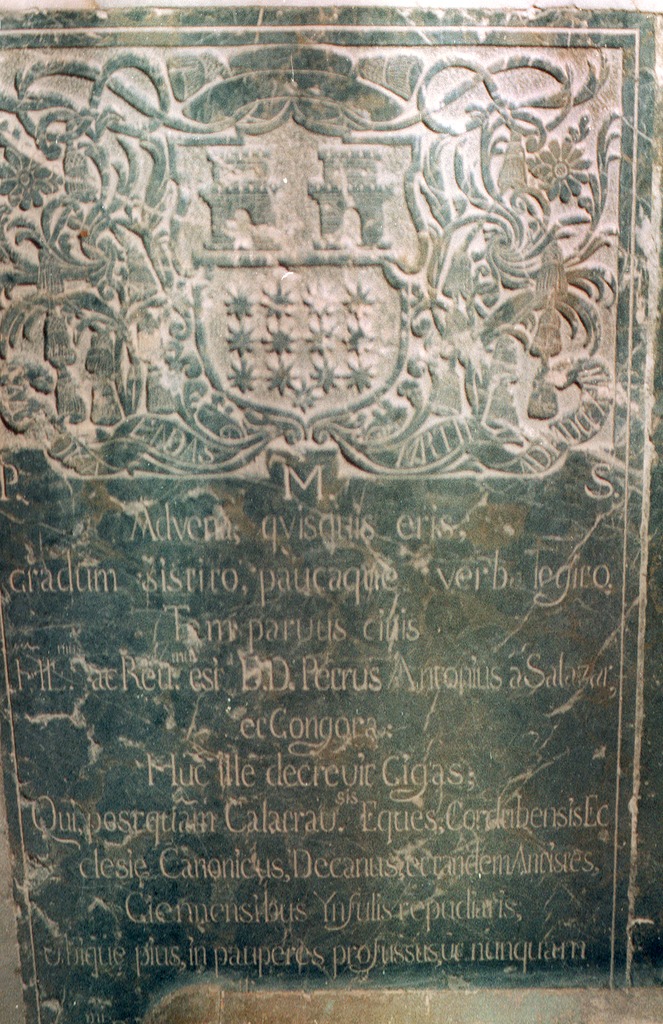 P. M. S.
Advena, qvisquis eris,
gradum sistito, paucaque verba legito.
Tam parvus
Ill.mus ac Reu.mus est D.D. Petrus Antonius a Salazar,
et Gongora:
Huc ille decrevit Gigas;
Qui, postquam Calatrau.sis Eques, Cordubensis Ec
clesie Canonicus, Decanus, et tandem Antistes,
Giennensibus Ynfulis repudiatis,
Ubique pius, in pauperes profussus, ut nunquam